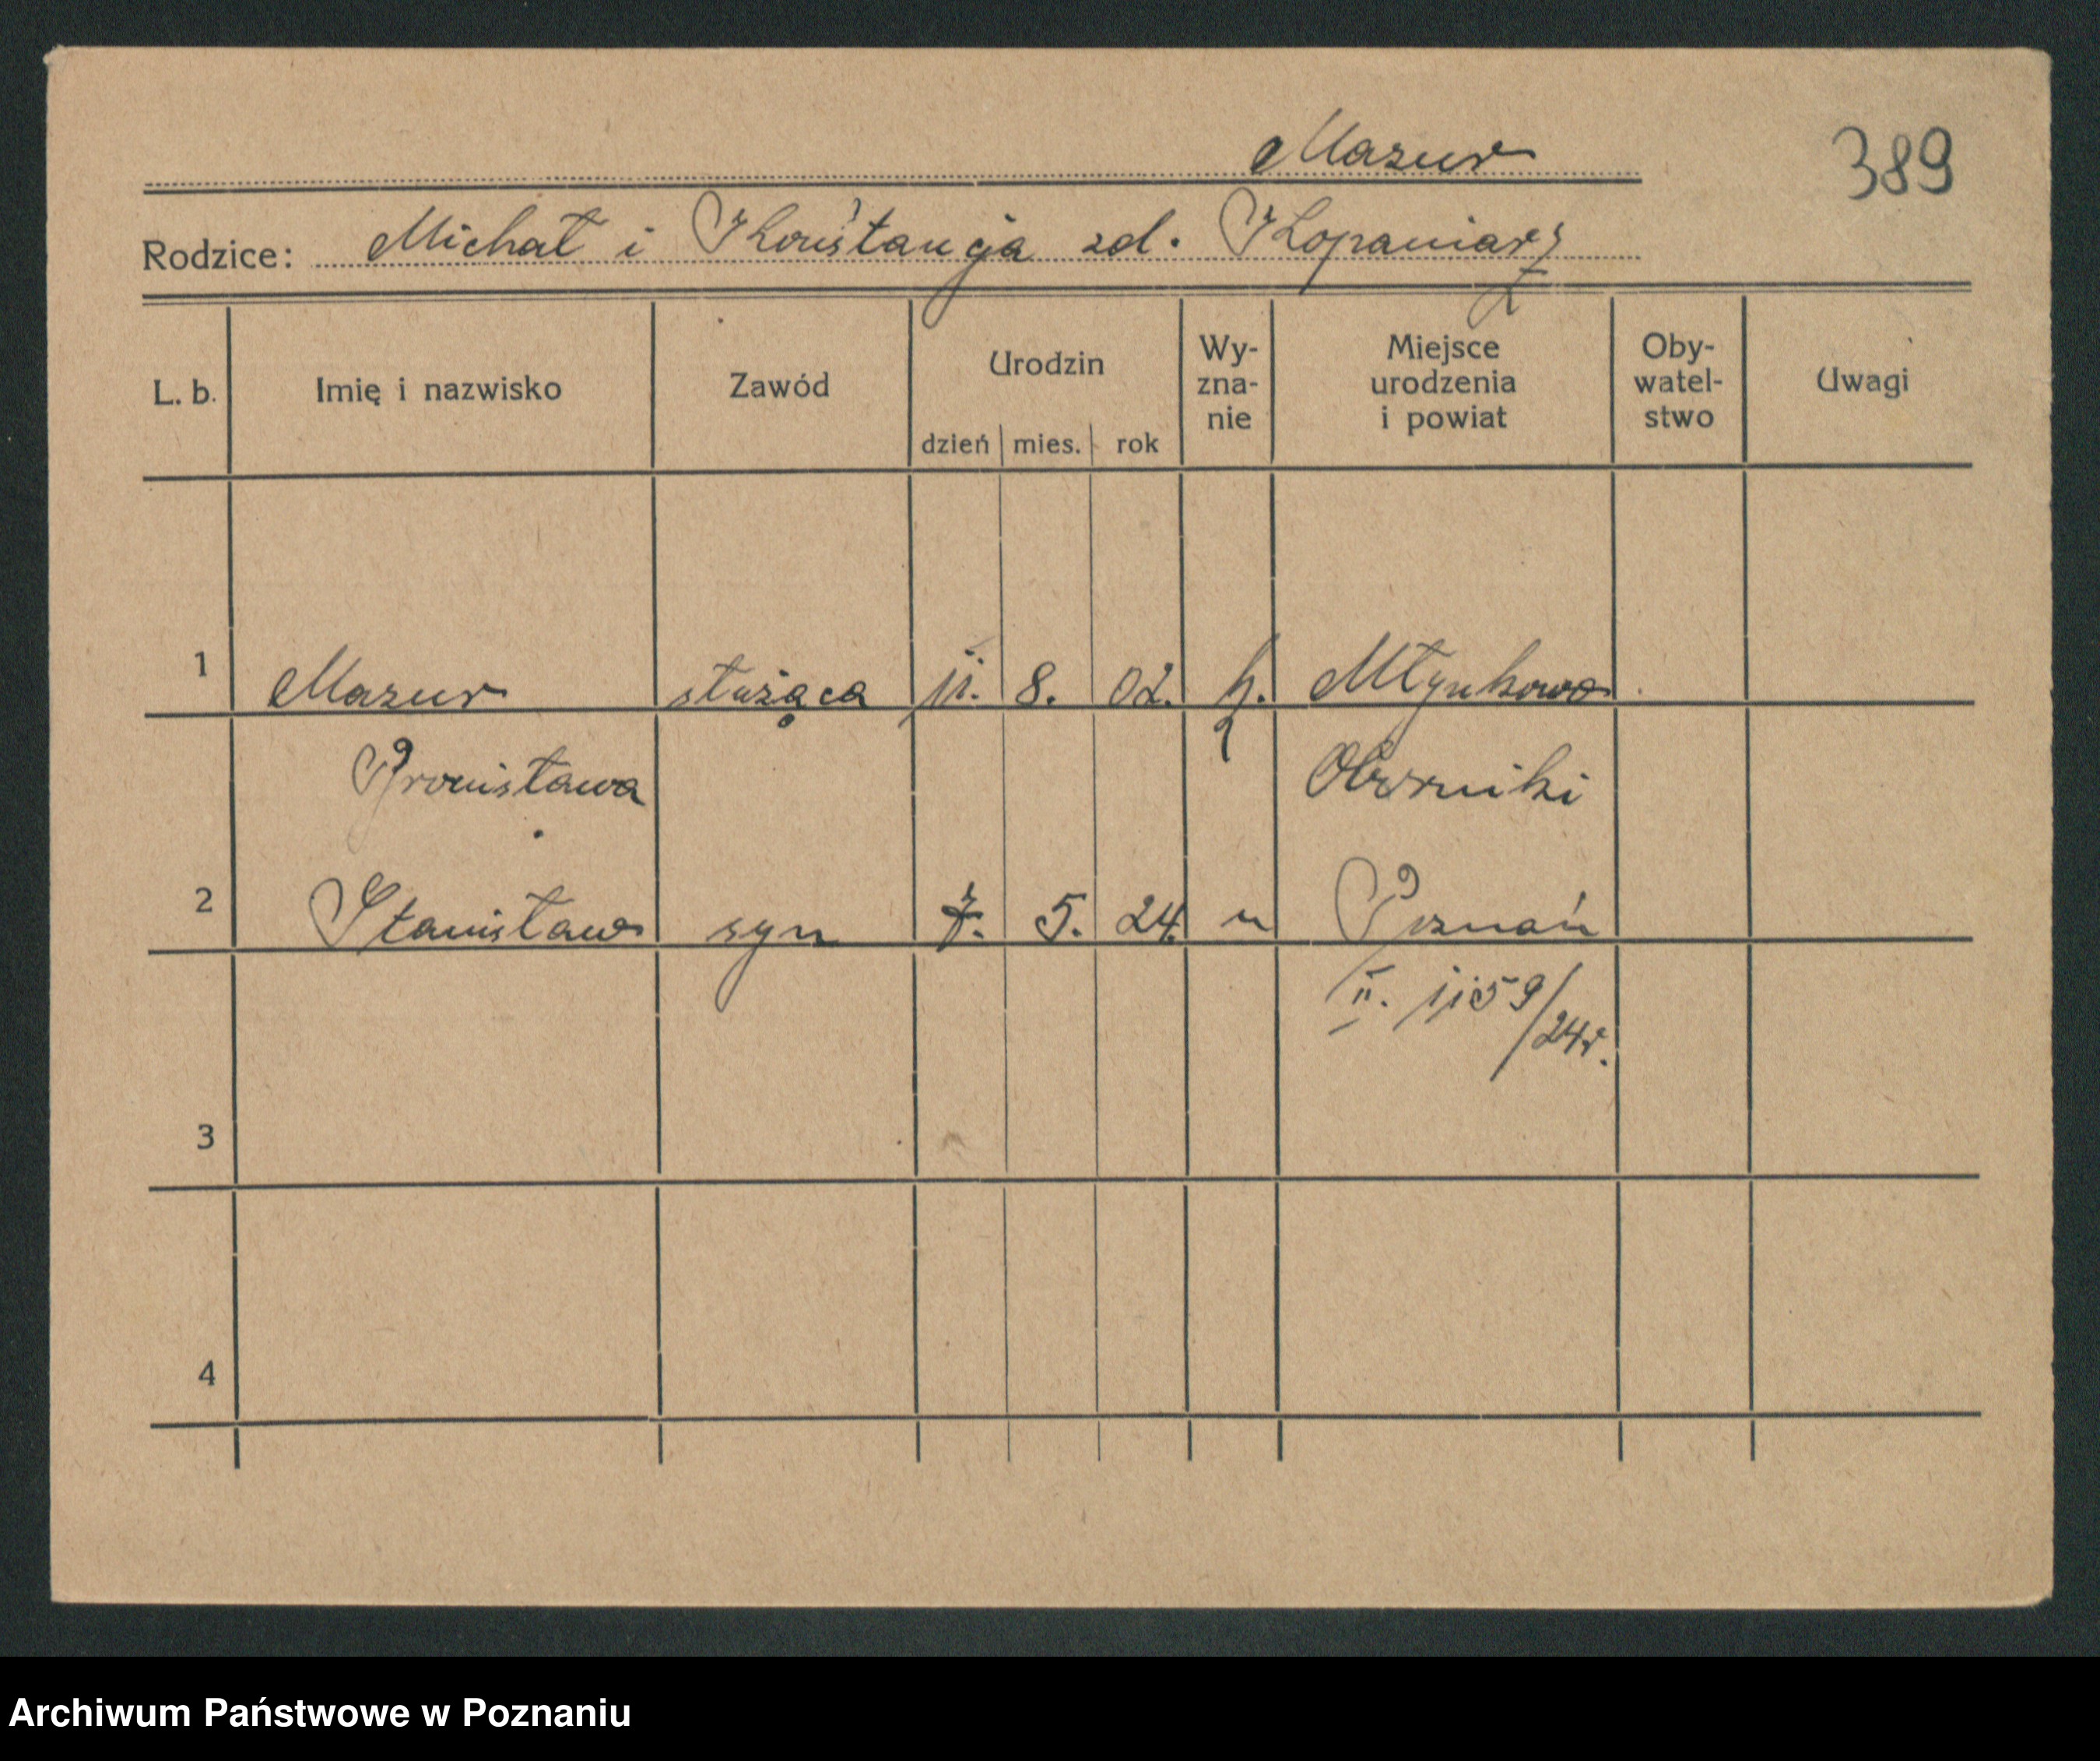 Mazur
389
Rodzice: Michał i Konstancja zd. Kopaniarz
L. b. Imię i nazwisko Zawód Urodzin dzień mies. rok Wy-zna-nie Miejsce urodzenia i powiat Oby-watel-stwo Uwagi
1 Mazur służąca 11. 8. 02. k. Młynkowo
Bronisława Oborniki
2 Stanisław syn 7. 5. 24. " Poznań
II. 1159/24r.
3
4
Archiwum Państwowe w Poznaniu